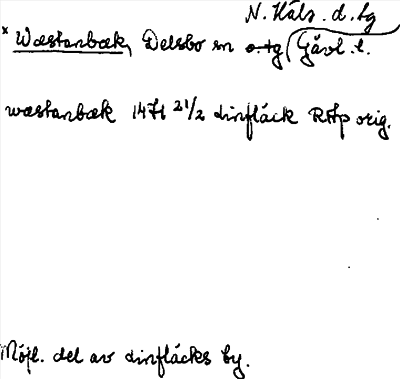 N. Häls. d. tg
* Wæstanbæk, Delsbo sn o. tg Gävl. l.
wæstanbæk 1471 21/2 dinfläck RAp orig.
Möjl. del av dinfläcks by.